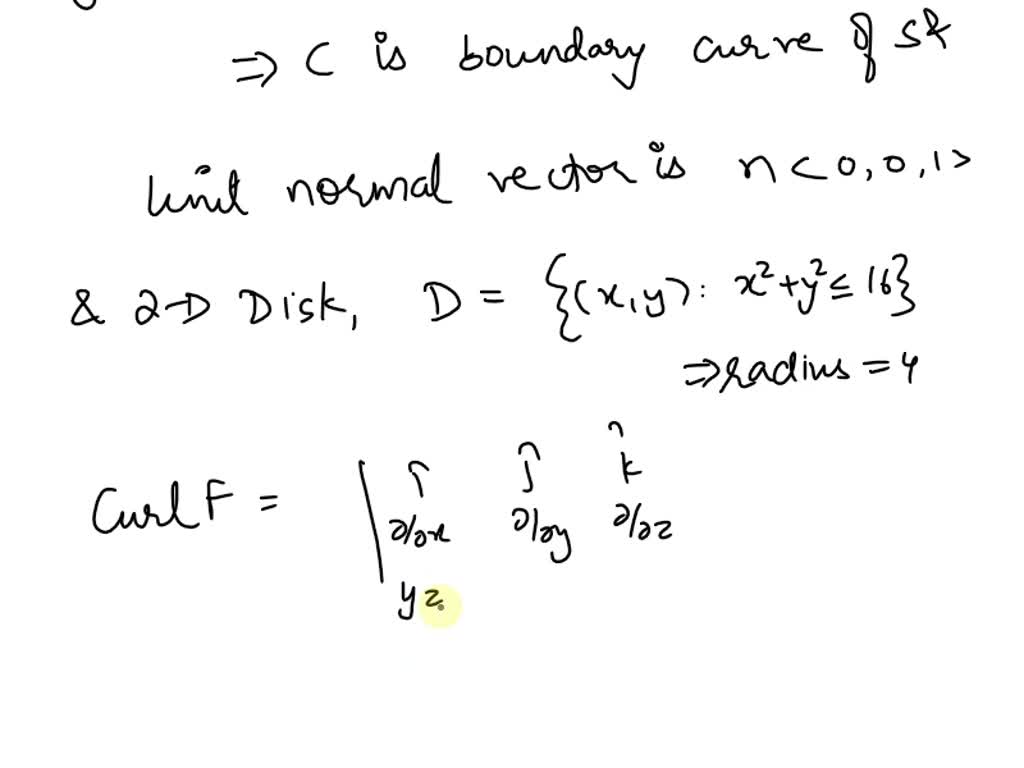 ⇒ C is boundary curve of S &
Unit normal vector is n <0, 0, 1>
& 2-D Disk, D = {(x,y): x²+y² ≤ 16}
⇒ radius = 4
Curl F = | î ĵ k̂
∂/∂x ∂/∂y ∂/∂z
yz